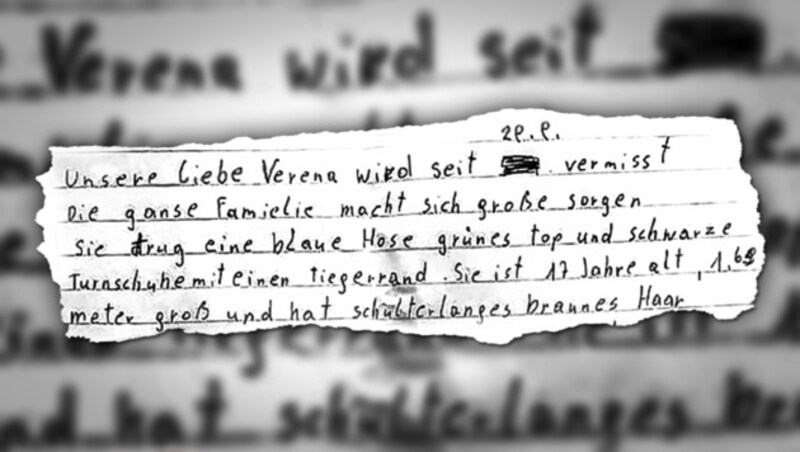 Verena wird seit
Unsere liebe Verena wird seit vermisst
Die ganse Famielie macht sich große sorgen
Sie trug eine blaue Hose grünes top und schwarze
Turnschuhe mit einen tiegerrand. Sie ist 17 Jahre alt,
meter groß und hat schulterlanges braunes Haar
hat schulterlanges